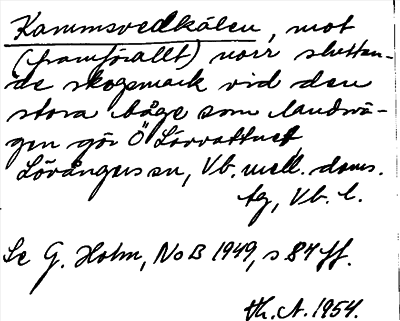 Kammsvedkälen, mot
(framförallt) norr sluttan-
de skogsmark vid den
stora båge som landsvä-
gen gör Ö Lövvattnet,
Lövångers sn, Vb. mell. doms.
tg, Vb. l.
Se G. Holm, NoB 1949, s 84 ff.
Th. A. 1954.